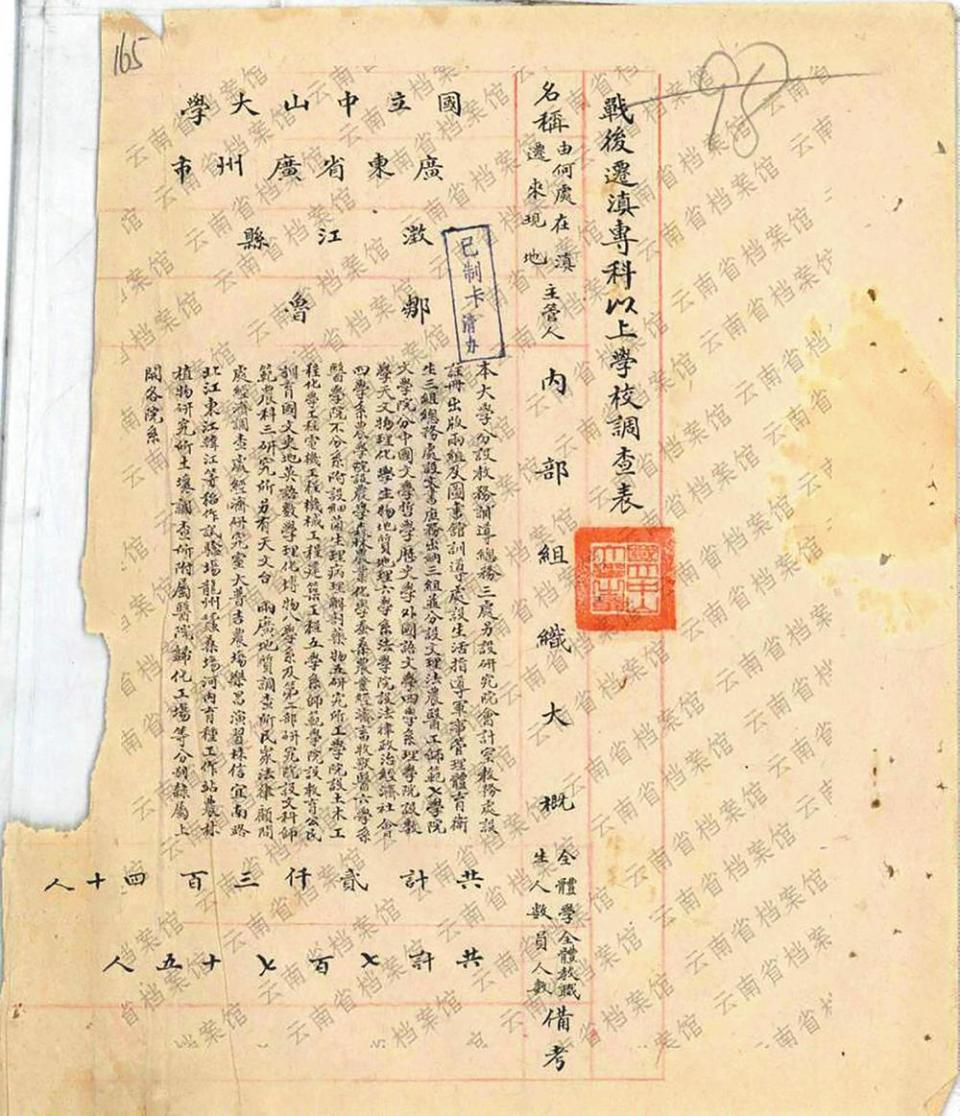 165
98
戰後遷滇專科以上學校調查表
名稱
由何處遷來
在滇現地
主管人
內部組織大概
全體學生人數
全體教職員人數
備考
國立中山大學
廣東省廣州市
澂江縣
鄒魯
已制卡清办
本大學分設教務訓導總務三處另設研究院會計室教務處設
註冊出版兩組及圖書館訓導處設生活指導軍事管理體育衛
生三組總務處設文書庶務出納三組並分設文理法農醫工師範七學院
文學院分中國文學哲學歷史學外國語文學四學系理學院設數
學天文物理化學生物地質地理六學系法學院設法律政治經濟社會
四學系農學院設農學森林農業化學蚕桑農業經濟畜牧獸醫六學系
醫學院不分系附設細菌生理病理解剖藥物五研究所工學院設土木工
程化學工程電機工程機械工程建築工程五學系師範學院設教育公民
訓育國文史地英語數學理化博物八學系及第二部研究院設文科師
範農科三研究所另有天文台兩廣地質調查所民眾法律顧問
處經濟調查處經濟研究室大普吉農場樂昌演習林信宜南路
北江東江韓江等稻作試驗場龍州蚕桑場河內育種工作站農林
植物研究所土壤調查所附屬醫院歸化工場等分別隸屬上
開各院系
共計貳仟三百四十人
共計七百七十五人
云南省档案馆